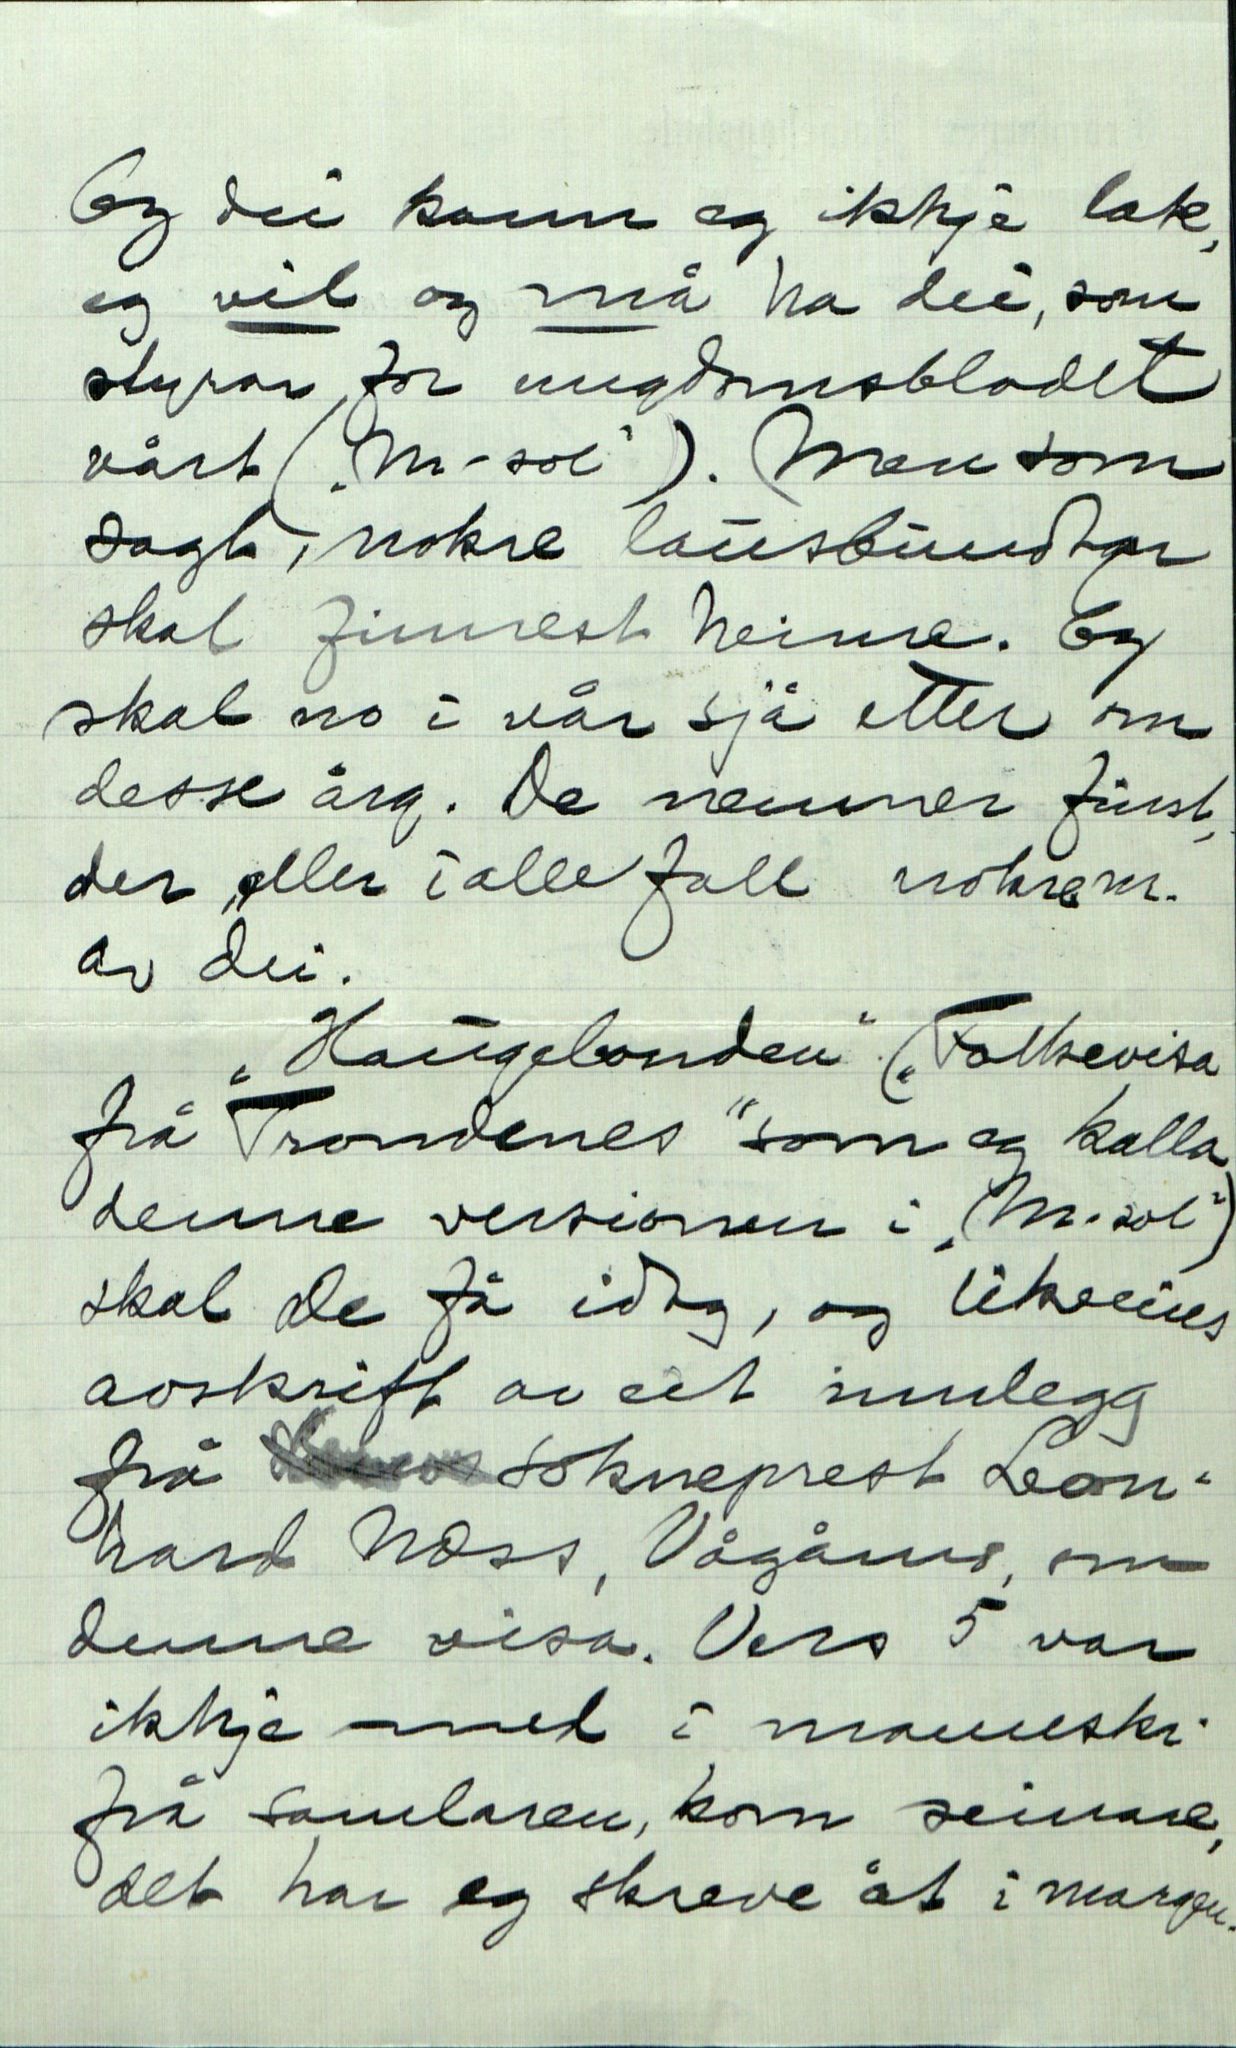 Og dei kann eg ikkje lak,
eg vil og må ha dei, som
styrar for ungdomsbladet
vårt („M-sol"). Men som
sagt, nokre lausbundtar
skal finnest heime. Eg
skal no i vår sjå etter om
desse årg. De nemner finst,
der, eller i alle fall nokre nr.
av dei.
„Haugebonden" („Folkevisa
frå Trondenes" som eg kalla
denne versionen i „M-sol")
skal De få idag, og likeeins
avskrift av eit innlegg
frå sokneprest Leon-
hard Næss, Vågåmo, om
denne visa. Vers 5 var
ikkje med i manuskr.
frå samlaren, kom seinare,
det har eg skreve åt i margen.